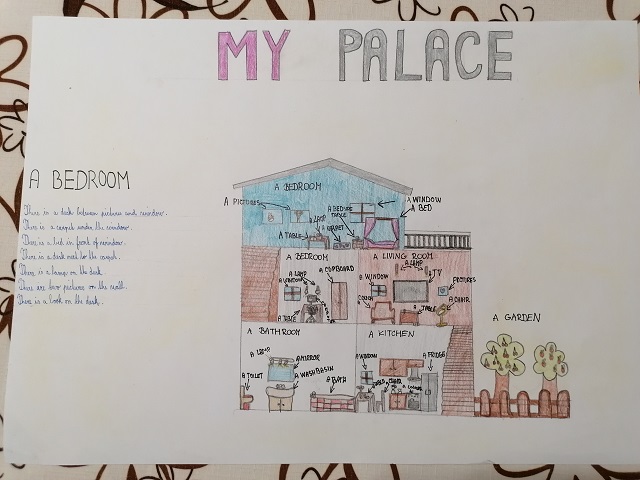 MY PALACE
A BEDROOM
There is a desk between pictures and window.
There is a carpet under the window.
There is a bed in front of window.
There is a desk next to the carpet.
There is a lamp on the desk.
There are two pictures on the wall.
There is a book on the desk.
A BEDROOM
A PICTURES
A WINDOW
A BED
A BEDSIDE TABLE
A LAMP
A CARPET
A TABLE
A BEDROOM
A LAMP
A CUPBOARD
A WINDOW
A TABLE
A LIVING ROOM
A LAMP
A WINDOW
A TV
PICTURES
A COUCH
A TABLE
A CHAIR
A GARDEN
A BATHROOM
A LAMP
A MIRROR
A TOILET
A WASHBASIN
A BATH
A KITCHEN
A WINDOW
A FRIDGE
A CHAIR